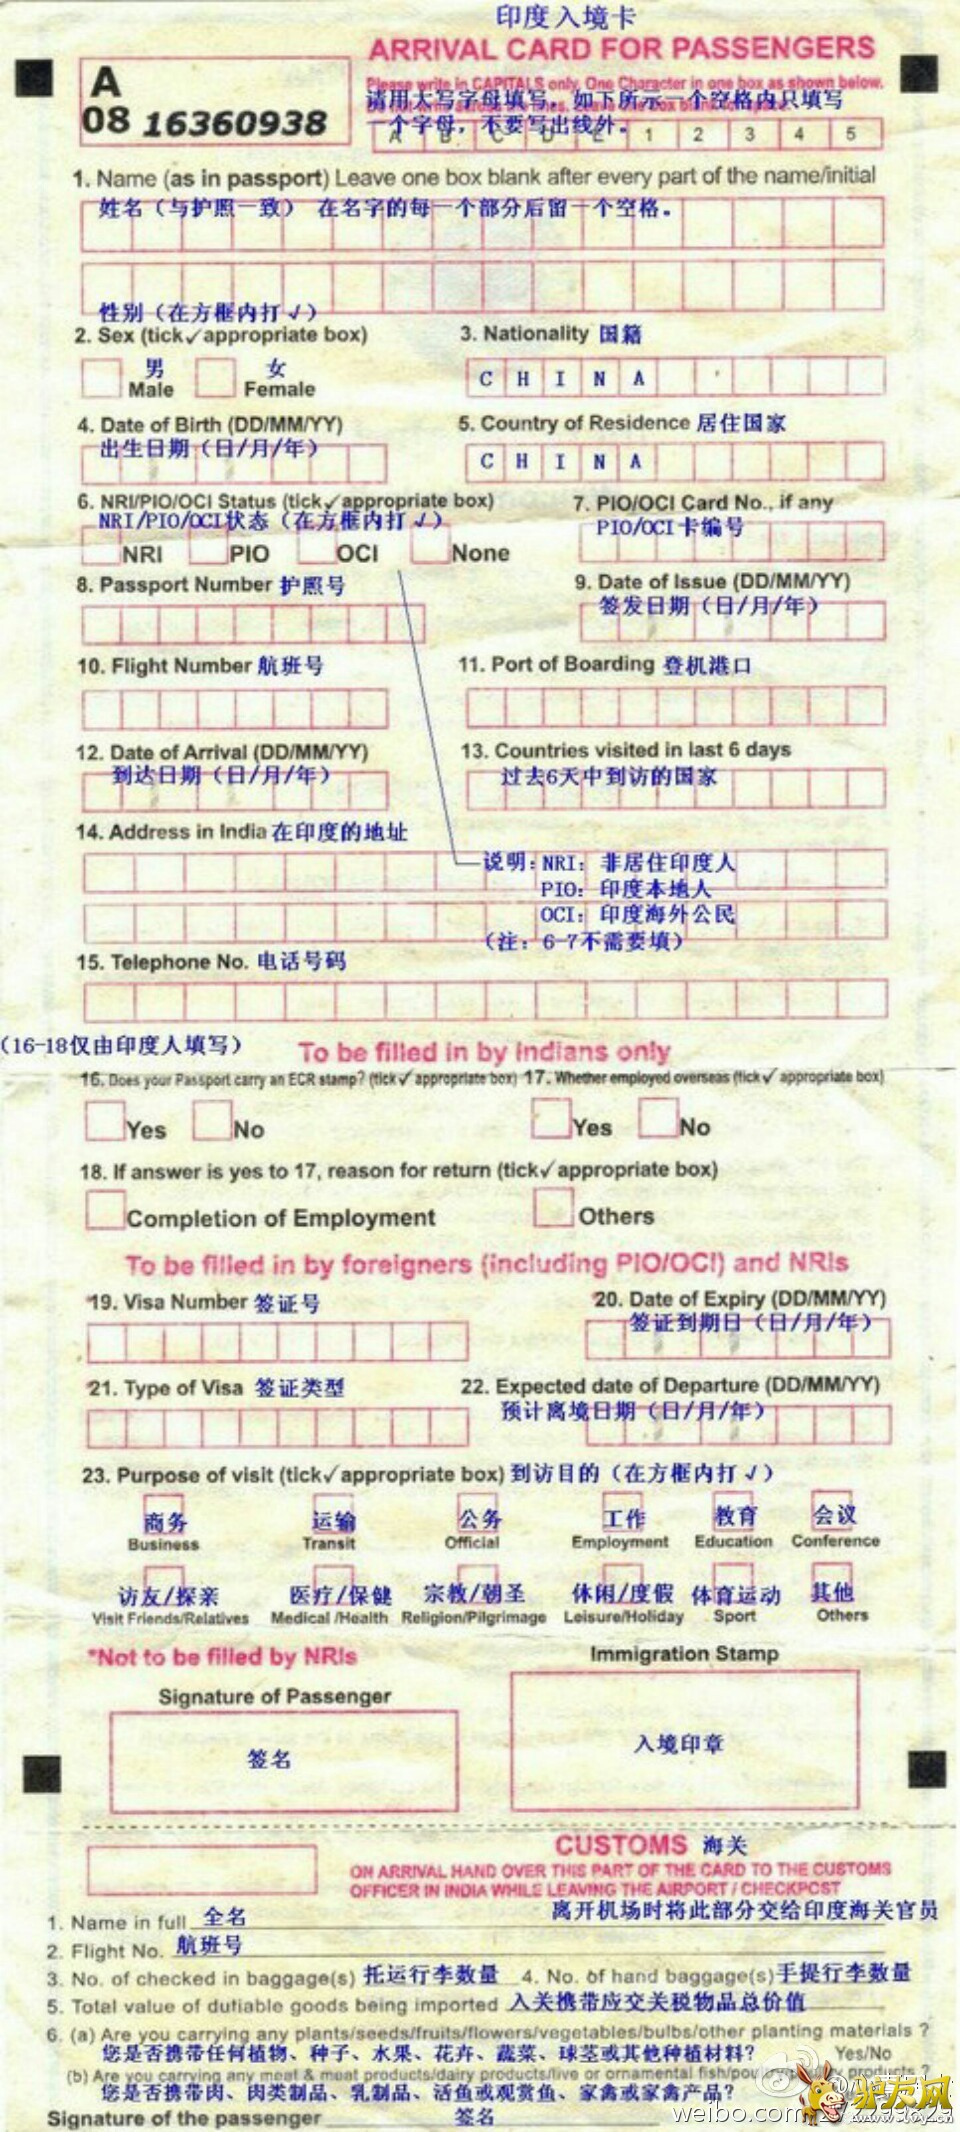 印度入境卡
ARRIVAL CARD FOR PASSENGERS
A
08 16360938
Please write in CAPITALS only. One Character in one box as shown below.
请用大写字母填写。如下所示一个空格内只填写
一个字母，不要写出线外。
A B C D E 1 2 3 4 5
1. Name (as in passport) Leave one box blank after every part of the name/initial
姓名（与护照一致） 在名字的每一个部分后留一个空格。
性别（在方框内打√）
2. Sex (tick✓appropriate box)
3. Nationality 国籍
男 女
Male Female
C H I N A
4. Date of Birth (DD/MM/YY)
出生日期（日/月/年）
5. Country of Residence 居住国家
C H I N A
6. NRI/PIO/OCI Status (tick✓appropriate box)
NRI/PIO/OCI状态（在方框内打√）
NRI PIO OCI None
7. PIO/OCI Card No., if any
PIO/OCI卡编号
8. Passport Number 护照号
9. Date of Issue (DD/MM/YY)
签发日期（日/月/年）
10. Flight Number 航班号
11. Port of Boarding 登机港口
12. Date of Arrival (DD/MM/YY)
到达日期（日/月/年）
13. Countries visited in last 6 days
过去6天中到访的国家
14. Address in India 在印度的地址
说明：NRI：非居住印度人
PIO：印度本地人
OCI：印度海外公民
（注：6-7不需要填）
15. Telephone No. 电话号码
（16-18仅由印度人填写）
To be filled in by Indians only
16. Does your Passport carry an ECR stamp? (tick✓appropriate box) 17. Whether employed overseas (tick✓appropriate box)
Yes No Yes No
18. If answer is yes to 17, reason for return (tick✓appropriate box)
Completion of Employment Others
To be filled in by foreigners (including PIO/OCI) and NRIs
*19. Visa Number 签证号
*20. Date of Expiry (DD/MM/YY)
签证到期日（日/月/年）
*21. Type of Visa 签证类型
22. Expected date of Departure (DD/MM/YY)
预计离境日期（日/月/年）
23. Purpose of visit (tick✓appropriate box) 到访目的（在方框内打√）
商务 运输 公务 工作 教育 会议
Business Transit Official Employment Education Conference
访友/探亲 医疗/保健 宗教/朝圣 休闲/度假 体育运动 其他
Visit Friends/Relatives Medical /Health Religion/Pilgrimage Leisure/Holiday Sport Others
*Not to be filled by NRIs
Immigration Stamp
Signature of Passenger
签名
入境印章
CUSTOMS 海关
ON ARRIVAL HAND OVER THIS PART OF THE CARD TO THE CUSTOMS
OFFICER IN INDIA WHILE LEAVING THE AIRPORT / CHECKPOST
离开机场时将此部分交给印度海关官员
1. Name in full 全名
2. Flight No. 航班号
3. No. of checked in baggage(s) 托运行李数量 4. No. of hand baggage(s) 手提行李数量
5. Total value of dutiable goods being imported 入关携带应交关税物品总价值
6. (a) Are you carrying any plants/seeds/fruits/flowers/vegetables/bulbs/other planting materials ?
您是否携带任何植物、种子、水果、花卉、蔬菜、球茎或其他种植材料？ Yes/No
(b) Are you carrying any meat & meat products/dairy products/live or ornamental fish/poultry products ?
您是否携带肉、肉类制品、乳制品、活鱼或观赏鱼、家禽或家禽产品？
Signature of the passenger 签名
weibo.com
驴友网